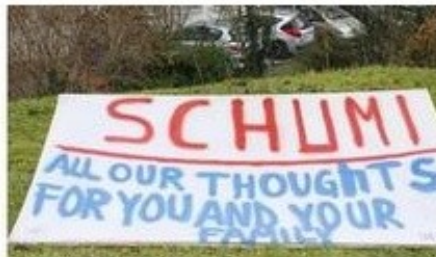 SCHUMI
ALL OUR THOUGhTS
FOR YOU AND YOUR
FAMILY